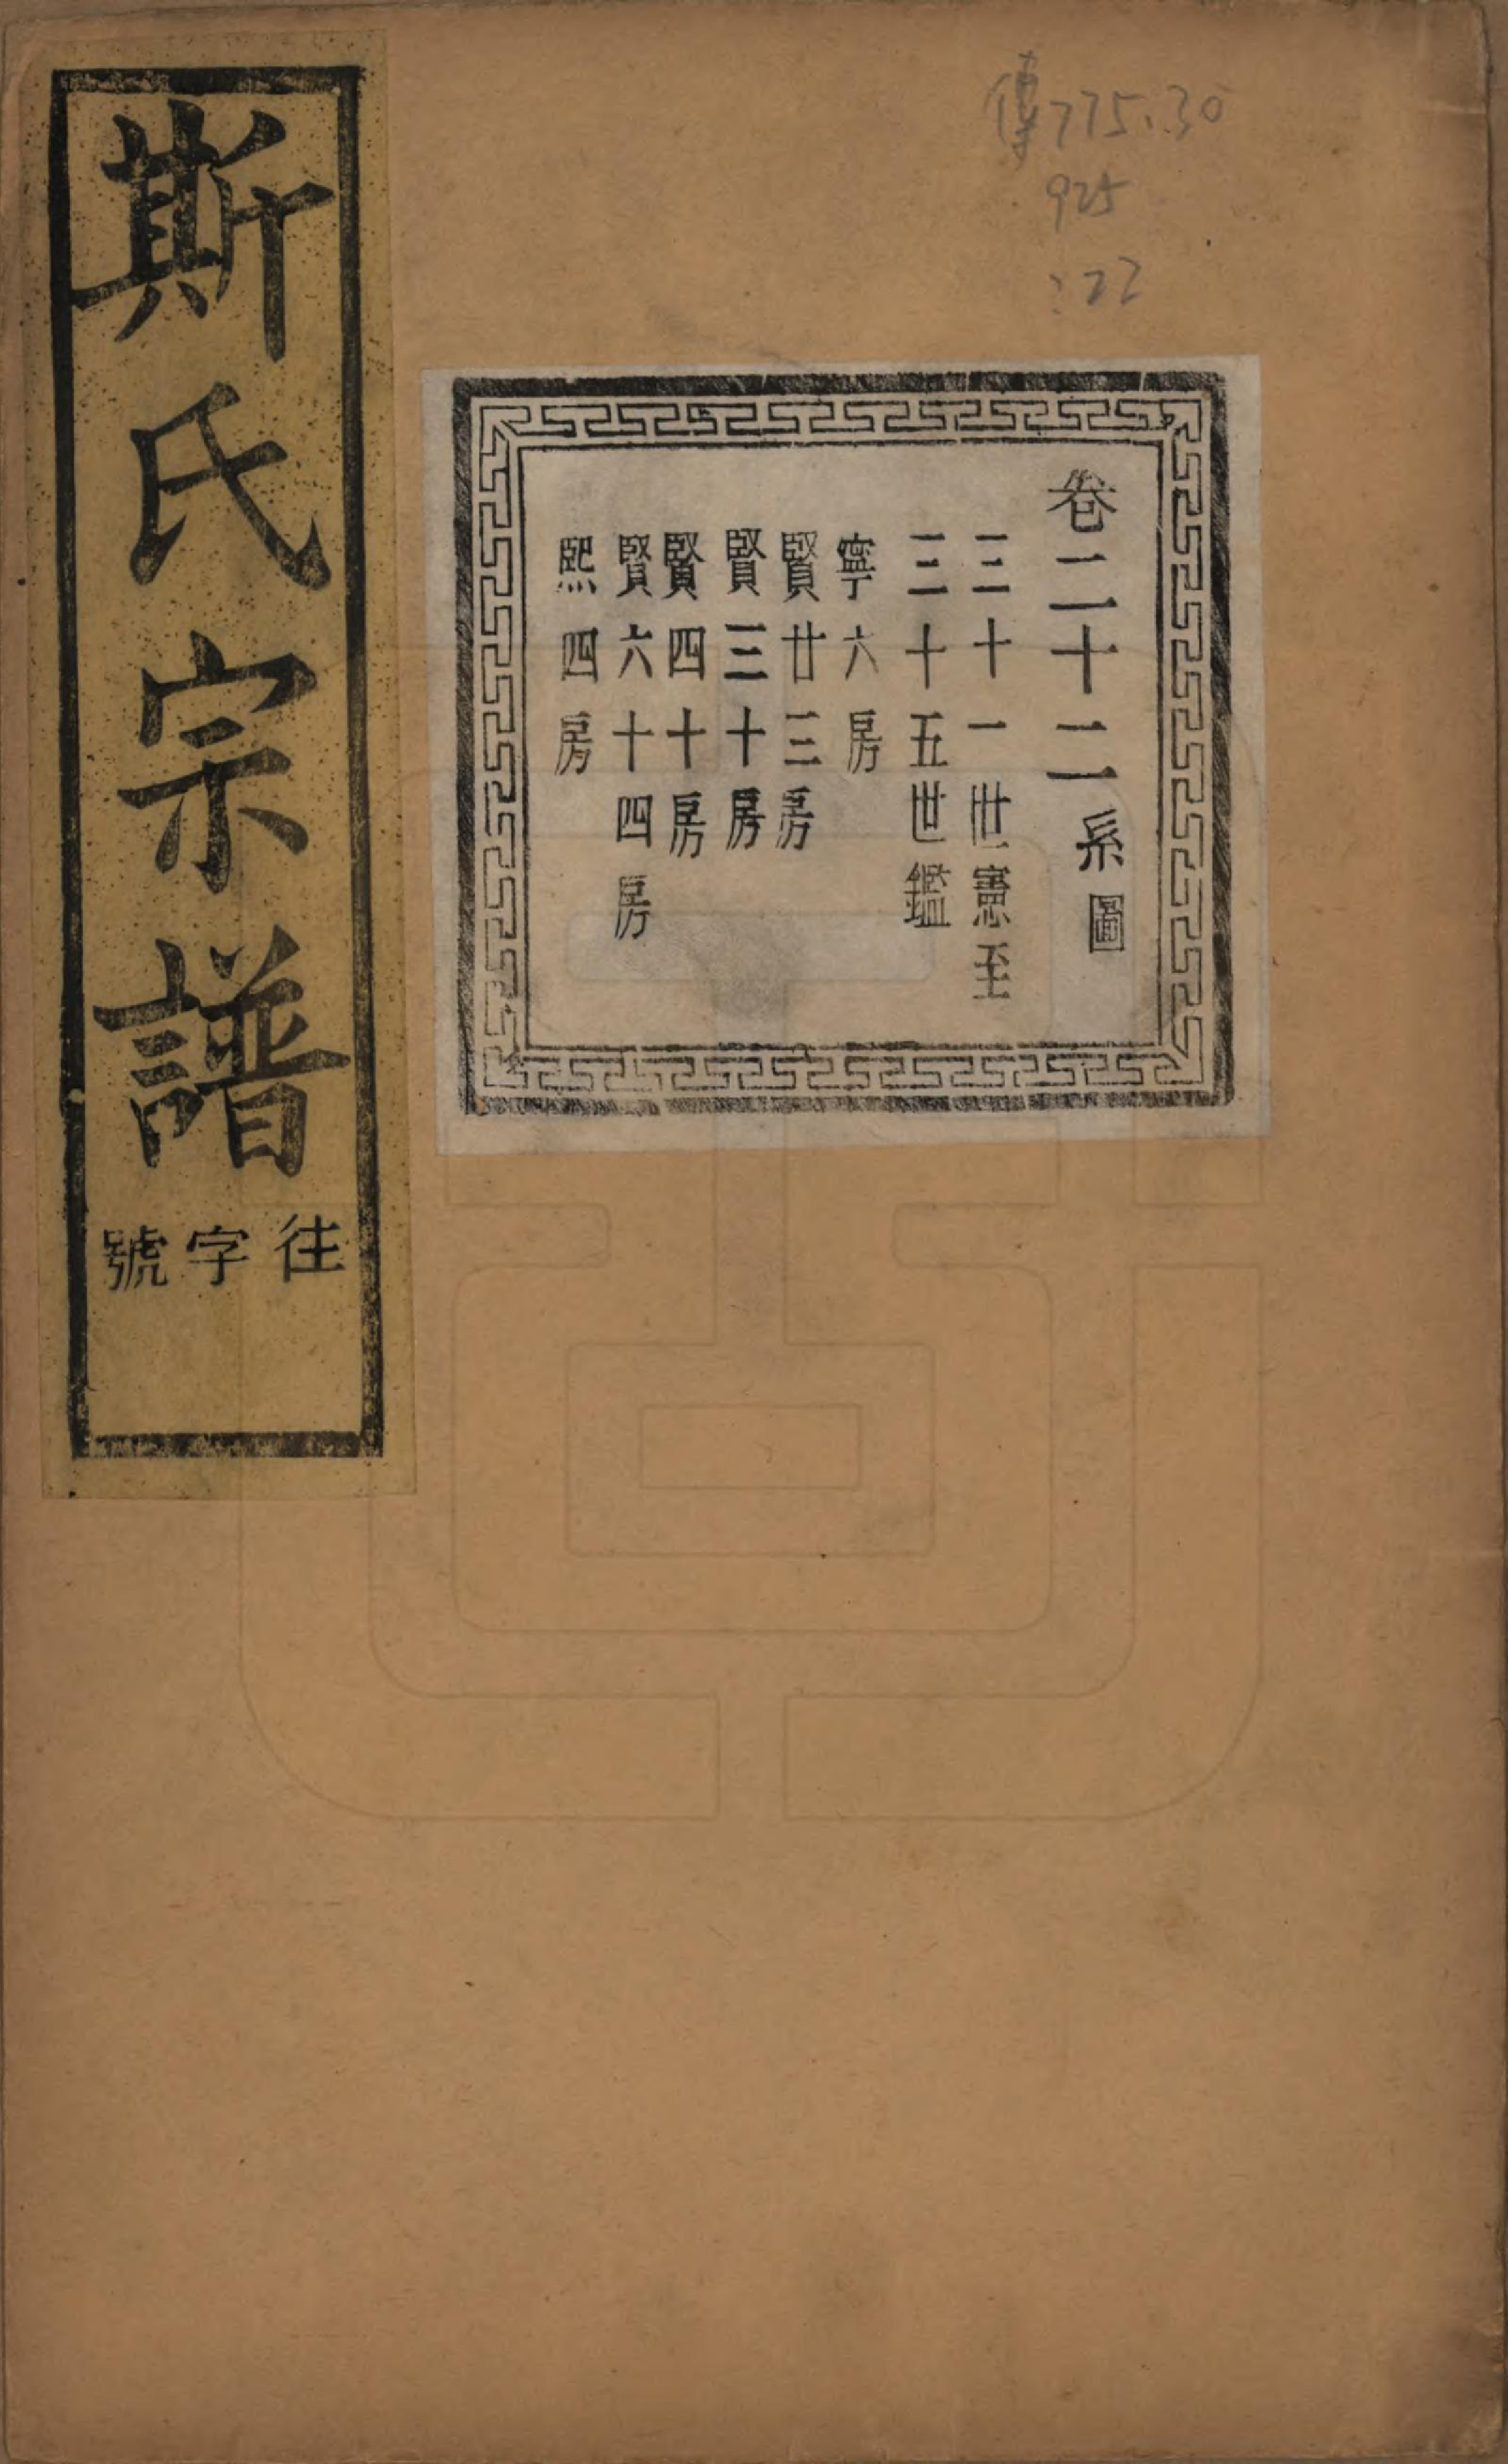 斯氏宗譜
往字號
傳775.30
925
:22
卷二十二系圖
三十一世憲至
三十五世鑑
寧六房
賢廿三房
賢三十房
賢四十房
賢六十四房
熙四房